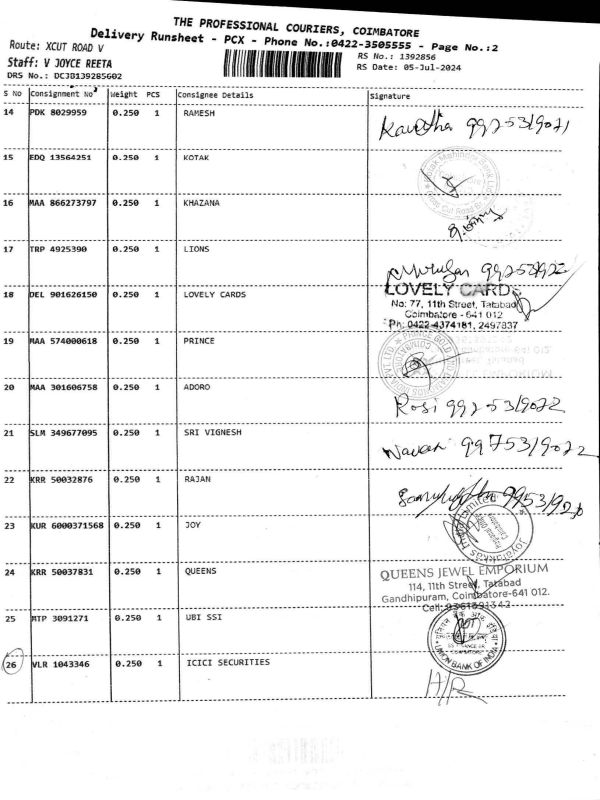 THE PROFESSIONAL COURIERS, COIMBATORE
Delivery Runsheet - PCX - Phone No.:0422-3505555 - Page No.:2
Route: XCUT ROAD V
RS No.: 1392856
Staff: V JOYCE REETA
RS Date: 05-Jul-2024
DRS No.: DCJB139285602
S No Consignment No Weight PCS Consignee Details Signature
14 PDK 8029959 0.250 1 RAMESH
15 EDQ 13564251 0.250 1 KOTAK
16 MAA 866273797 0.250 1 KHAZANA
17 TRP 4925390 0.250 1 LIONS
18 DEL 901626150 0.250 1 LOVELY CARDS
LOVELY CARDS
No: 77, 11th Street, Tatabad
Coimbatore - 641 012
Ph: 0422-4374181, 2497837
19 MAA 574000618 0.250 1 PRINCE
20 MAA 301606758 0.250 1 ADORO
Rosi
21 SLM 349677095 0.250 1 SRI VIGNESH
22 KRR 50032876 0.250 1 RAJAN
23 KUR 6000371568 0.250 1 JOY
24 KRR 50037831 0.250 1 QUEENS
QUEENS JEWEL EMPORIUM
114, 11th Street, Tatabad
Gandhipuram, Coimbatore-641 012.
25 MTP 3091271 0.250 1 UBI SSI
UNION BANK OF INDIA
26 VLR 1043346 0.250 1 ICICI SECURITIES